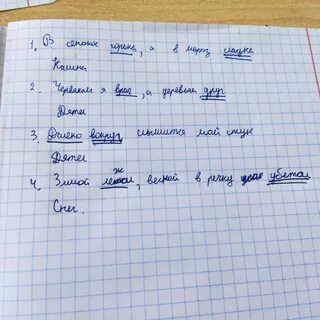 1. В сенокос горька, а в мороз сладка
Калина
2. Червякам я враг, а деревьям друг
Дятел
3. Далеко вокруг слышится мой стук
Дятел
4. Зимой лежал, весной в речку убежал
Снег.